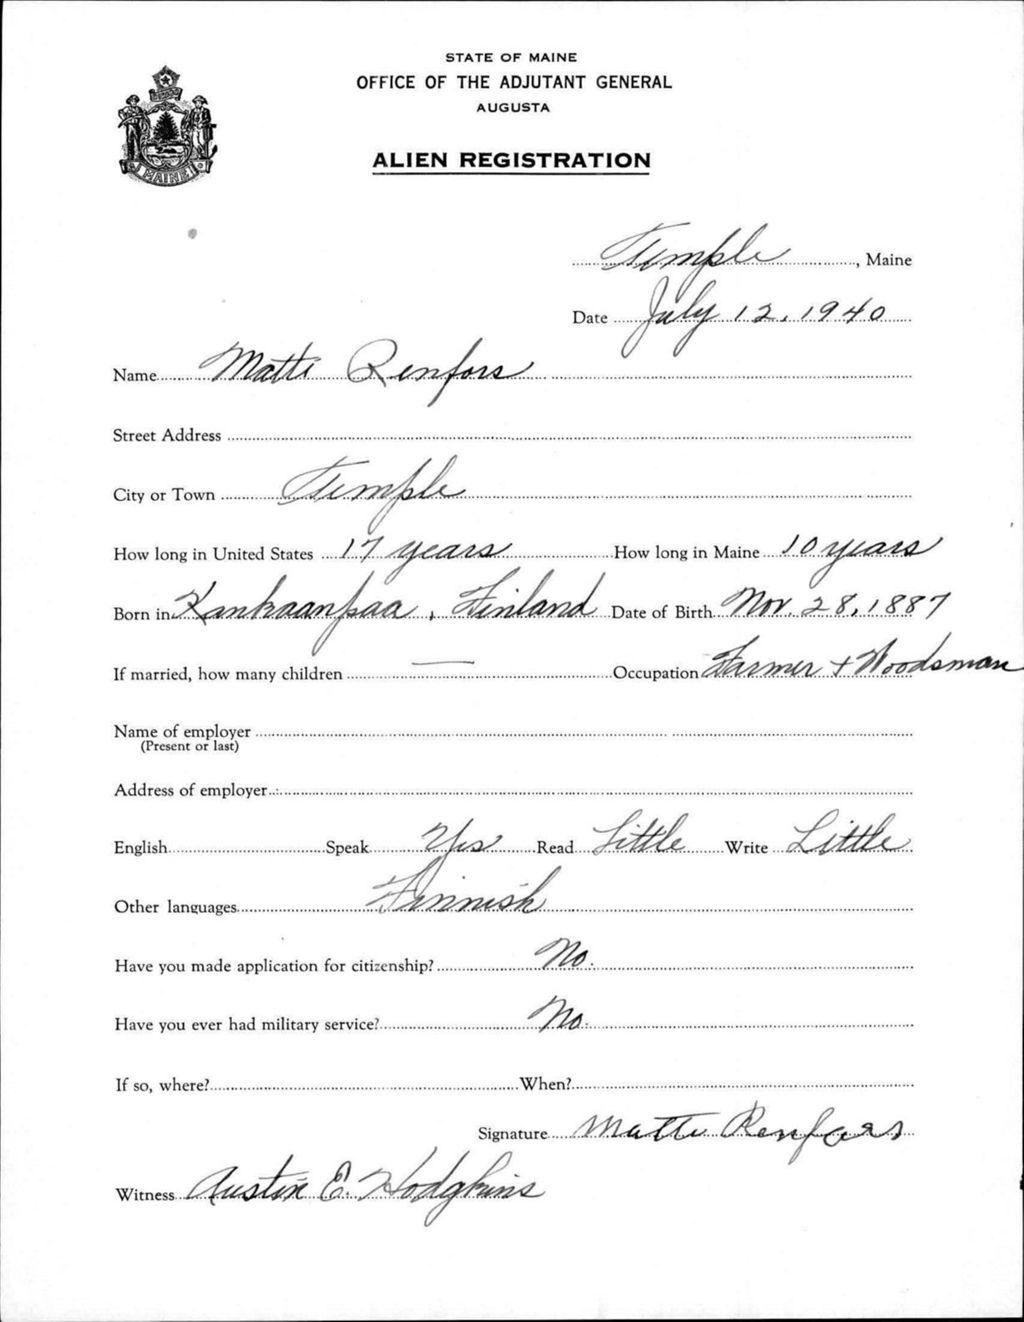 STATE OF MAINE
OFFICE OF THE ADJUTANT GENERAL
AUGUSTA
ALIEN REGISTRATION
MAINE
Temple, Maine
Date July 12, 1940
Name Matti Renfors
Street Address
City or Town Temple
How long in United States 17 years How long in Maine 10 years
Born in Kankaanpaa, Finland Date of Birth Nov. 28, 1887
If married, how many children — Occupation Farmer + Woodsman
Name of employer
(Present or last)
Address of employer
English Speak Yes Read Little Write Little
Other languages Finnish
Have you made application for citizenship? No.
Have you ever had military service? No.
If so, where? When?
Signature Matti Renfors
Witness Austin E. Hodgkins